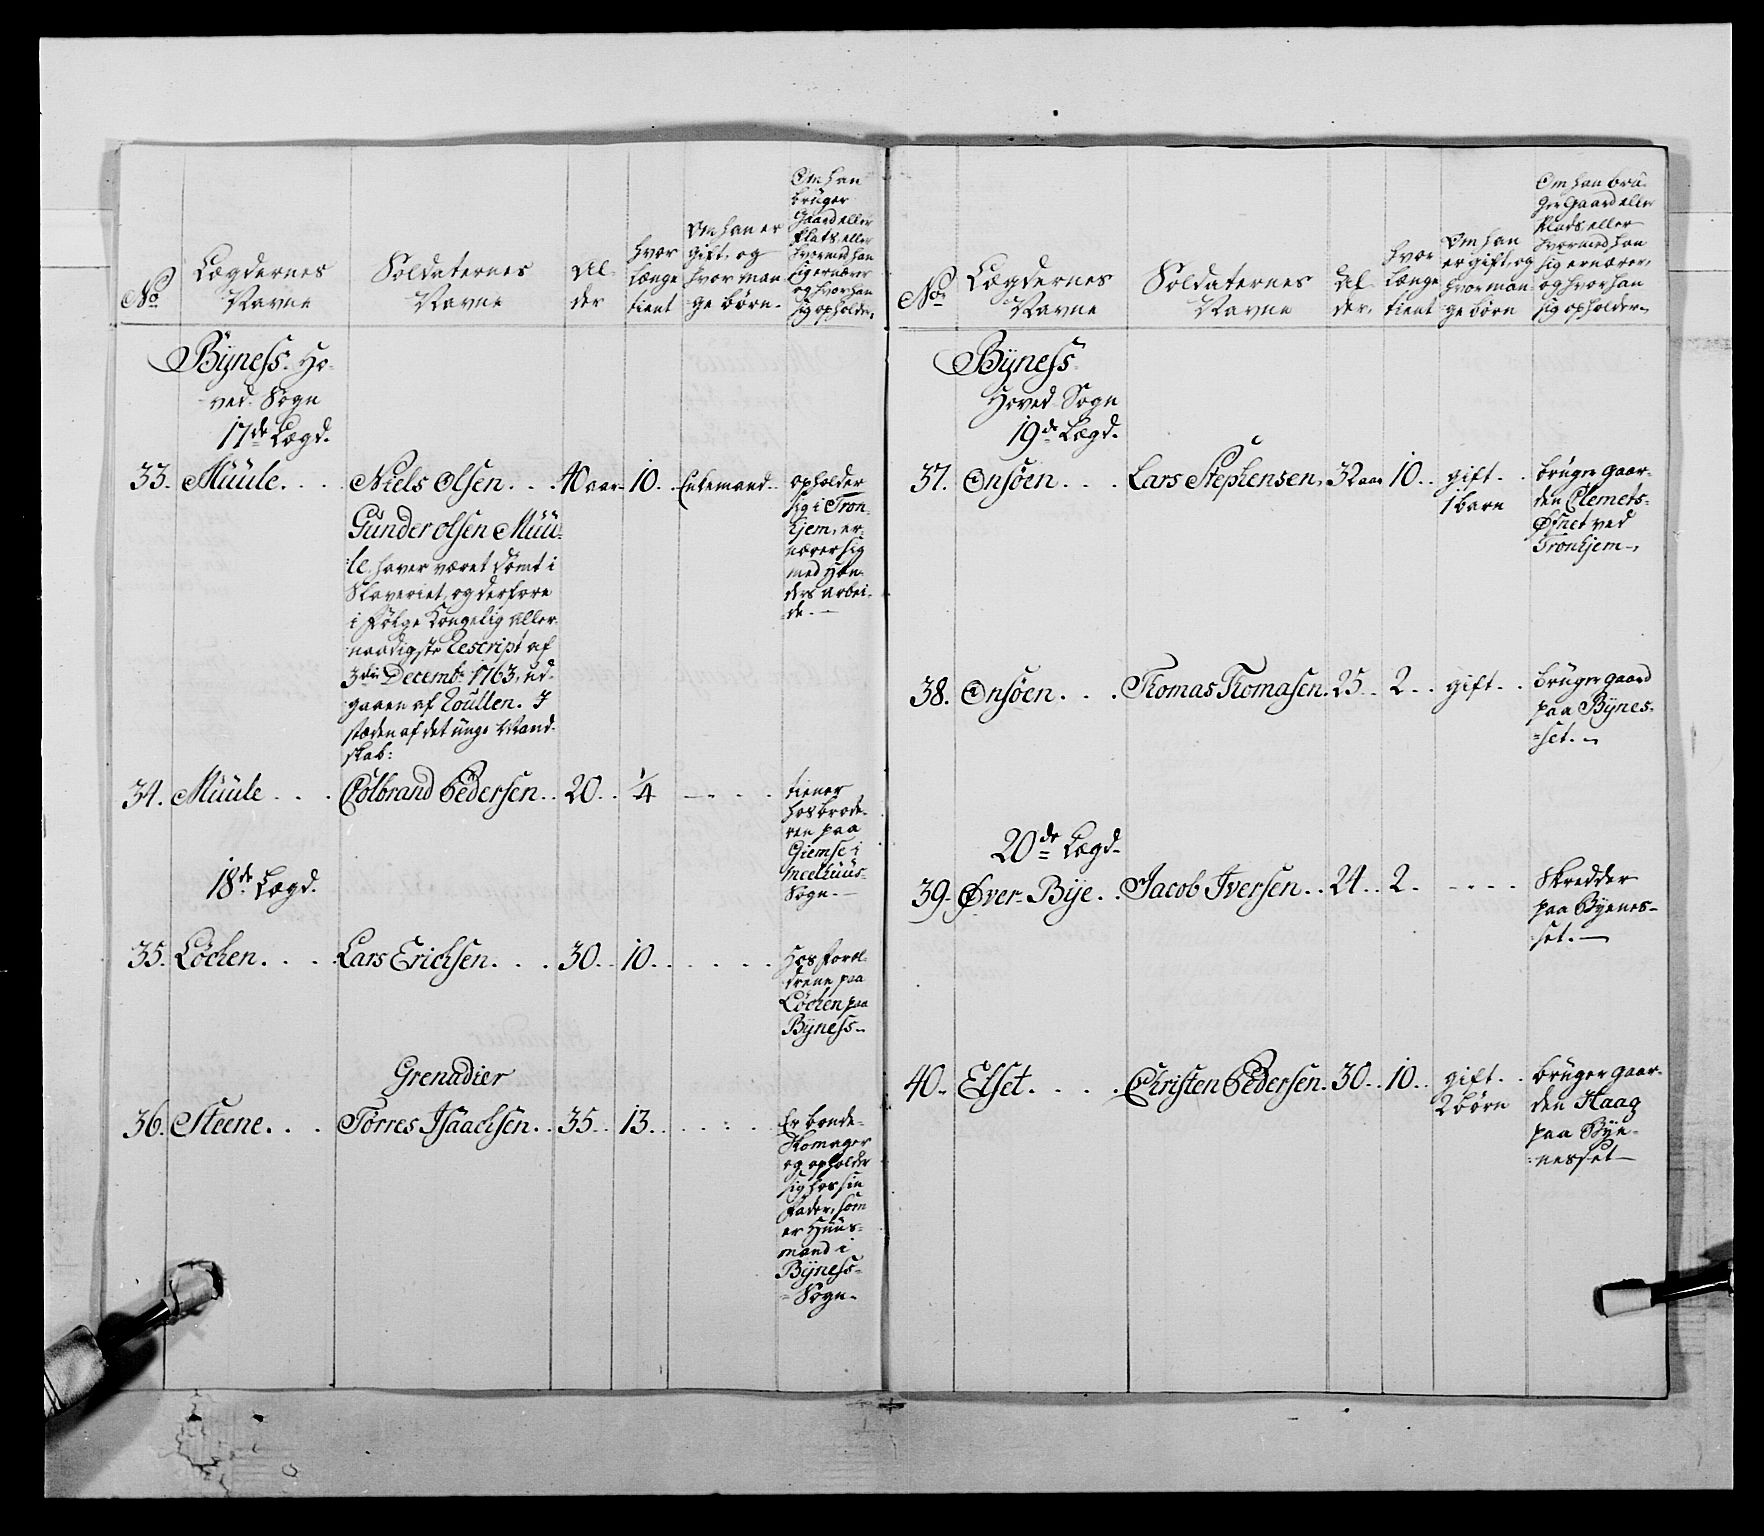 No
Lægdernes
Navne
Soldaternes
Navne
Al-
der
hvor
længe
tient
Om han er
gift, og
hvor man-
ge børn.
Om han
bruger
Gaard eller
Plads, eller
hvormed han
sig ernærer
og hvor han
sig opholder,
Bÿness Ho-
ved Sogn
17de Lægd.
33. Muule. . . . Niels Olsen. . . 40 aar. 10. . Enkemand. .
opholder
sig i Tron-
hjem, er-
nærer sig
med Hæn-
ders arbei-
de. —
Gunder Olsen Muu-
le, haver været dømt i
Slaveriet, og derfore
i følge Kongelig Aller-
naadigste Rescript af
3die Decembr 1763, ud-
gaaen af Roullen. I
stæden af det unge Mand-
skab:
34. Muule . . . Colbrand Pedersen. . 20. . 1/4 — . . .
tiener
hos brode-
ren paa
Giemse i
Meelhuus
Sogn. —
18de Lægd.
35. Løchen. . . . Lars Erichsen. . . . 30. . 10. . . . . .
Hos foræl-
drene paa
Løchen paa
Bÿness —
Grenadier
36. Steene. . . . Torres Isaachsen. . 35. . 13. . . . . .
Er bonde-
Skomager
og opholder
sig hos sin
Fader, som
er Huus-
mand i
Bÿness-
Sogn.
No
Lægdernes
Navne
Soldaternes
Navne
Al-
der.
hvor
længe
tient
Om han
er gift, og
hvor man-
ge børn
Om han bru-
ger Gaard eller
Plads, eller
hvormed han
sig ernærer,
og hvor han
sig opholder
Bÿness
Hoved Sogn
19de Lægd.
37. Onsøen. . . . Lars Stephensen, 32 aar 10. . gift. . .
1 barn
bruger gaar-
den Clemets-
Øfnet ved
Tronhjem —
38. Onsøen. . . . Thomas Thomasen. 25. . 2. . gift. . .
bruger gaard
paa Bÿnes-
set. —
20de Lægd.
39. Øver-Bÿe. . . Jacob Iversen. . 24. . 2. . - - - -
Skredder
paa Byenes-
set. —
40. Elset. . . . . Christen Pedersen. 30. . 10. . gift. . .
2 børn
bruger gaar-
den Haag
paa Bÿe-
nesset —